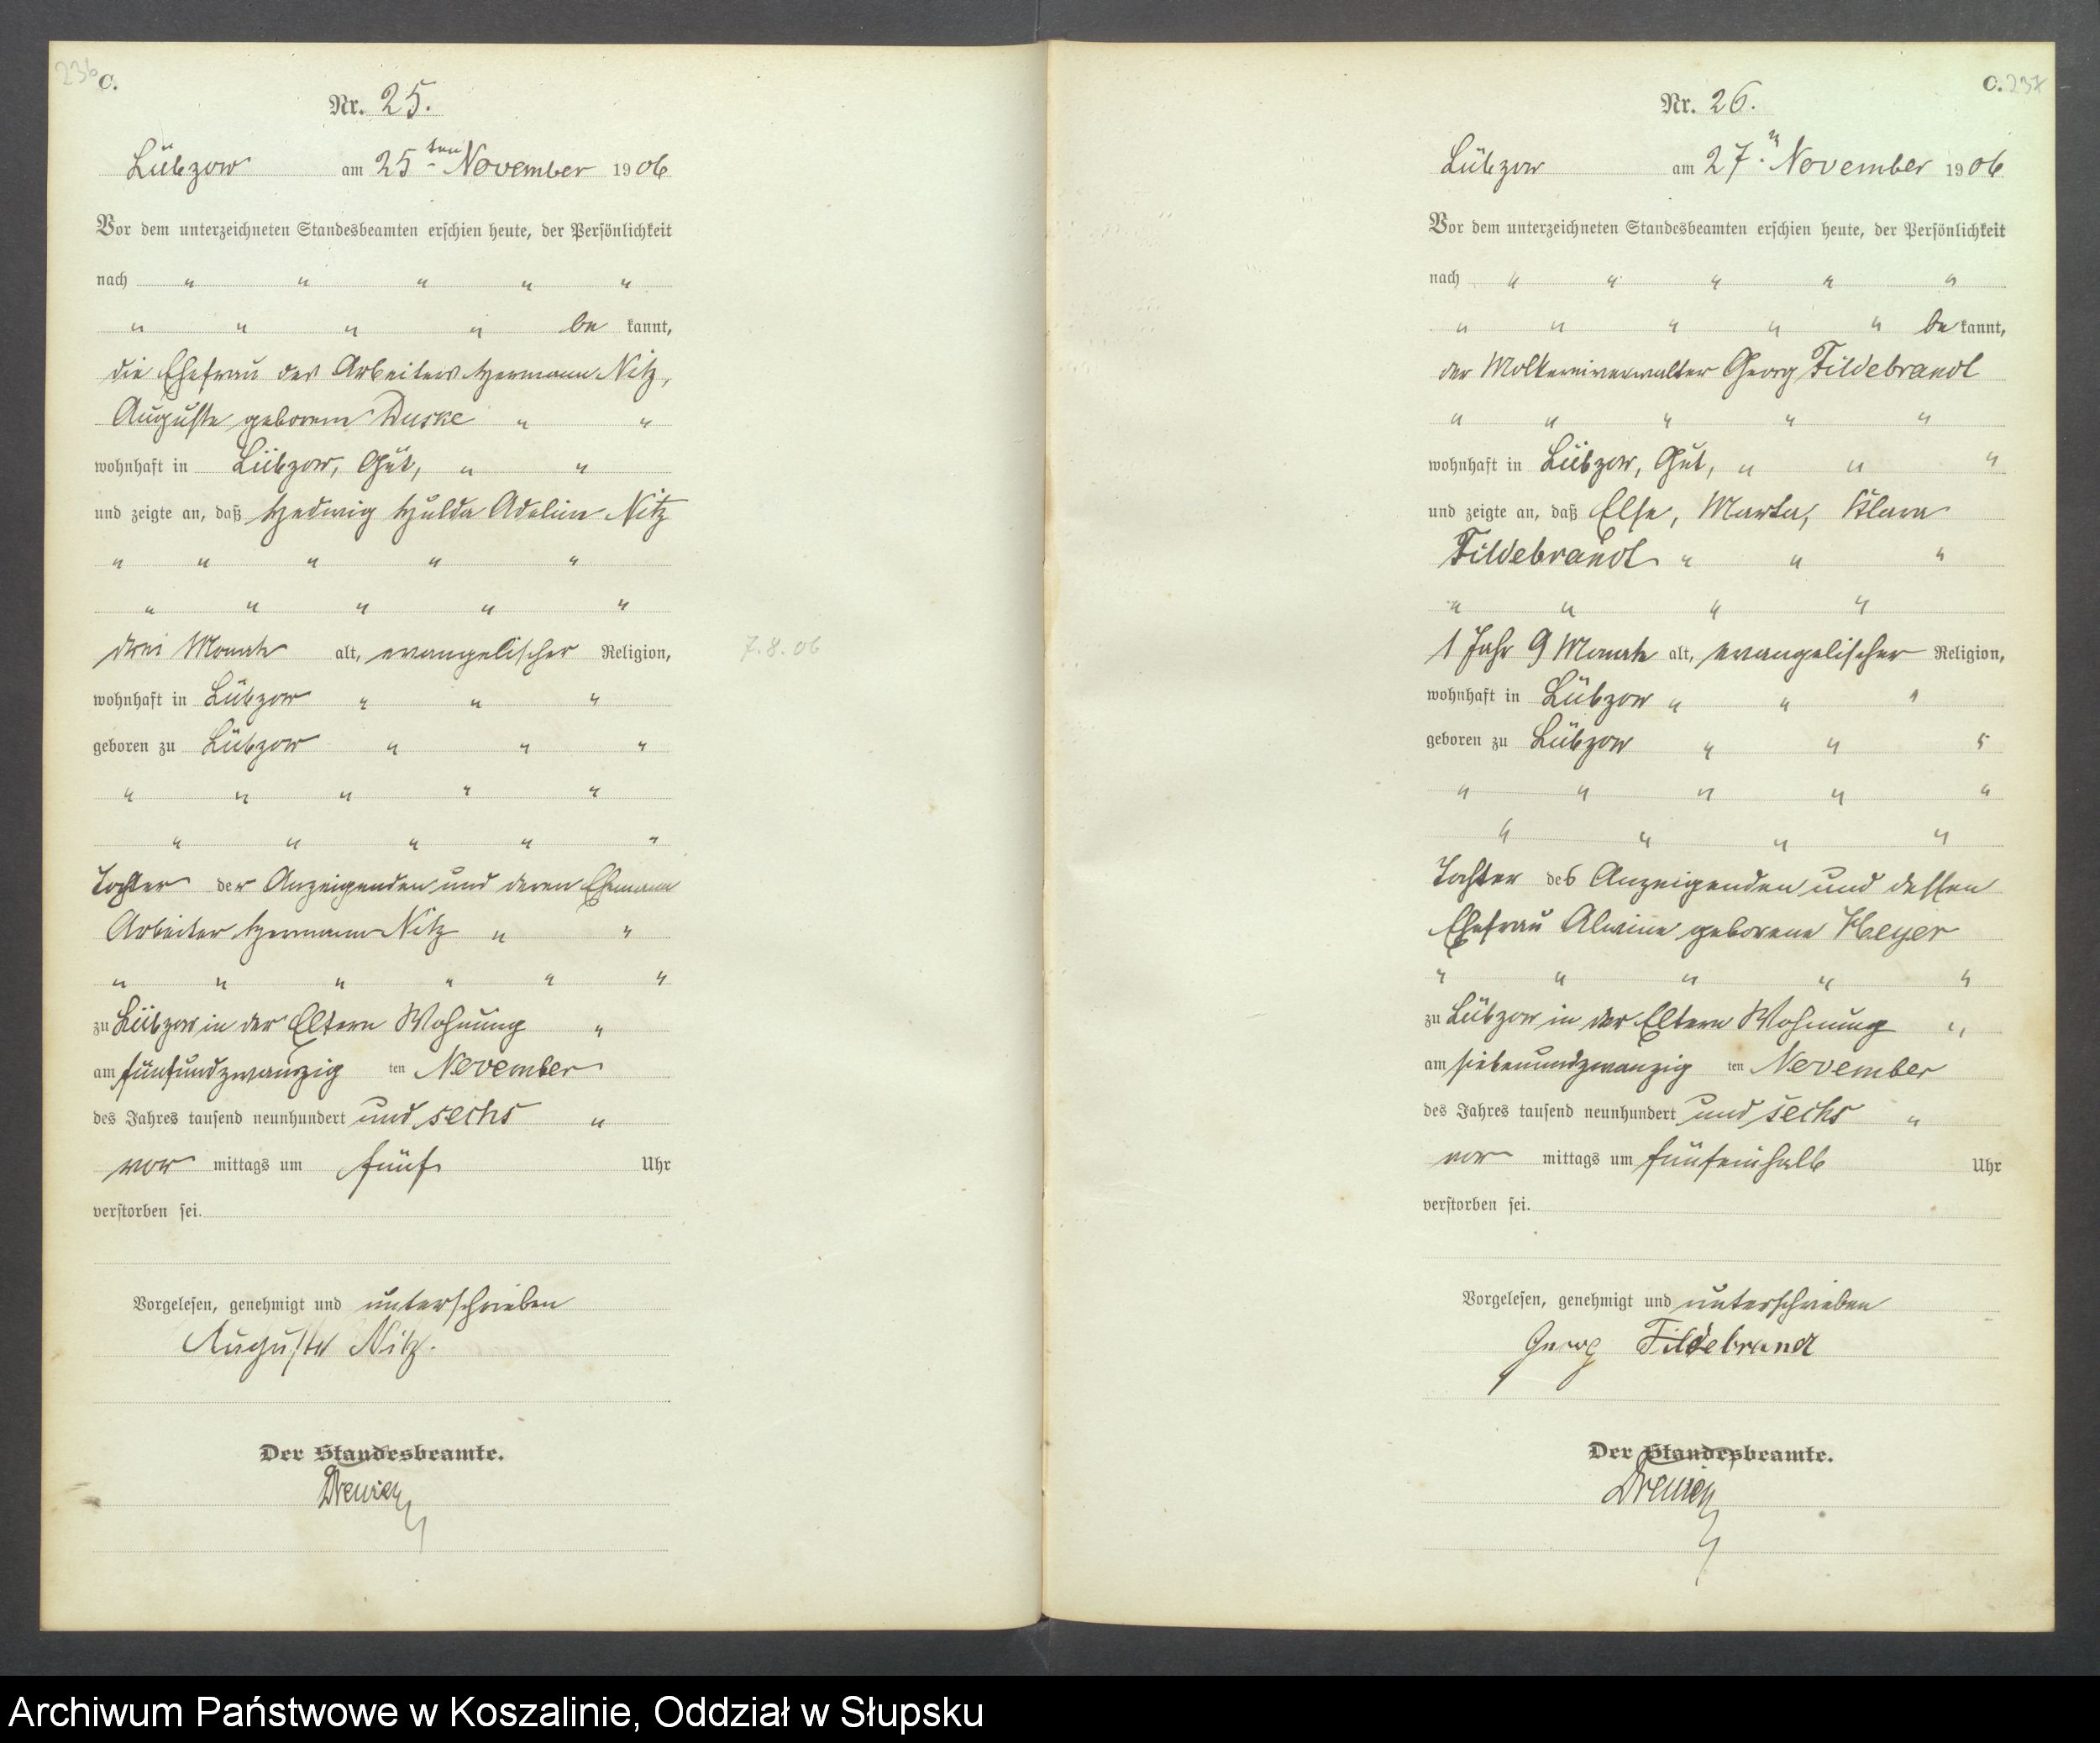 236 C.
Nr. 25.
Lübzow am 25ten November 1906
Vor dem unterzeichneten Standesbeamten erschien heute, der Persönlichkeit
nach " " " " "
" " " " be kannt,
die Ehefrau des Arbeiters Hermann Nitz,
Auguste geborene Duske " "
wohnhaft in Lübzow, Gut, " "
und zeigte an, daß Hedwig Hulda Adeline Nitz
" " " " "
" " " " "
drei Monate alt, evangelischer Religion,
7.8.06
wohnhaft in Lübzow " " "
geboren zu Lübzow " " "
" " " " "
" " " " "
Tochter der Anzeigenden und deren Ehemann
Arbeiter Hermann Nitz " "
" " " " " "
zu Lübzow in der Eltern Wohnung "
am fünfundzwanzig ten November
des Jahres tausend neunhundert und sechs "
vor mittags um fünf Uhr
verstorben sei.
Vorgelesen, genehmigt und unterschrieben
Auguste Nitz.
Der Standesbeamte.
C. 237
Nr. 26.
Lübzow am 27.n November 1906
Vor dem unterzeichneten Standesbeamten erschien heute, der Persönlichkeit
nach " " " " "
" " " " " be kannt,
der Molkereiverwalter Georg Fildebrandt
" " " " "
wohnhaft in Lübzow, Gut, " " "
und zeigte an, daß Else, Marta, Klara
Fildebrandt " " "
" " " "
1 Jahr 9 Monate alt, evangelischer Religion,
wohnhaft in Lübzow " " "
geboren zu Lübzow " " "
" " " " "
" " " "
Tochter des Anzeigenden und dessen
Ehefrau Alwine geborene Heyer
" " " " "
zu Lübzow in der Eltern Wohnung "
am siebenundzwanzig ten November
des Jahres tausend neunhundert und sechs "
vor mittags um fünfeinhalb Uhr
verstorben sei.
Vorgelesen, genehmigt und unterschrieben
Georg Fildebrandt
Der Standesbeamte.
Archiwum Państwowe w Koszalinie, Oddział w Słupsku